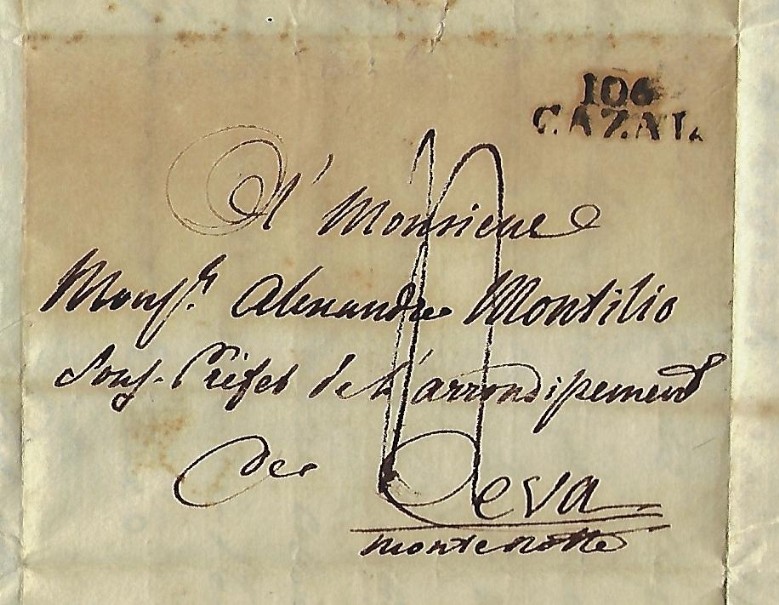 106
CAZAL
A Monsieur
Monsʳ. Alexandre Montilio
Sous-Préfet de l'arrondissement
de Ceva
Montenotte